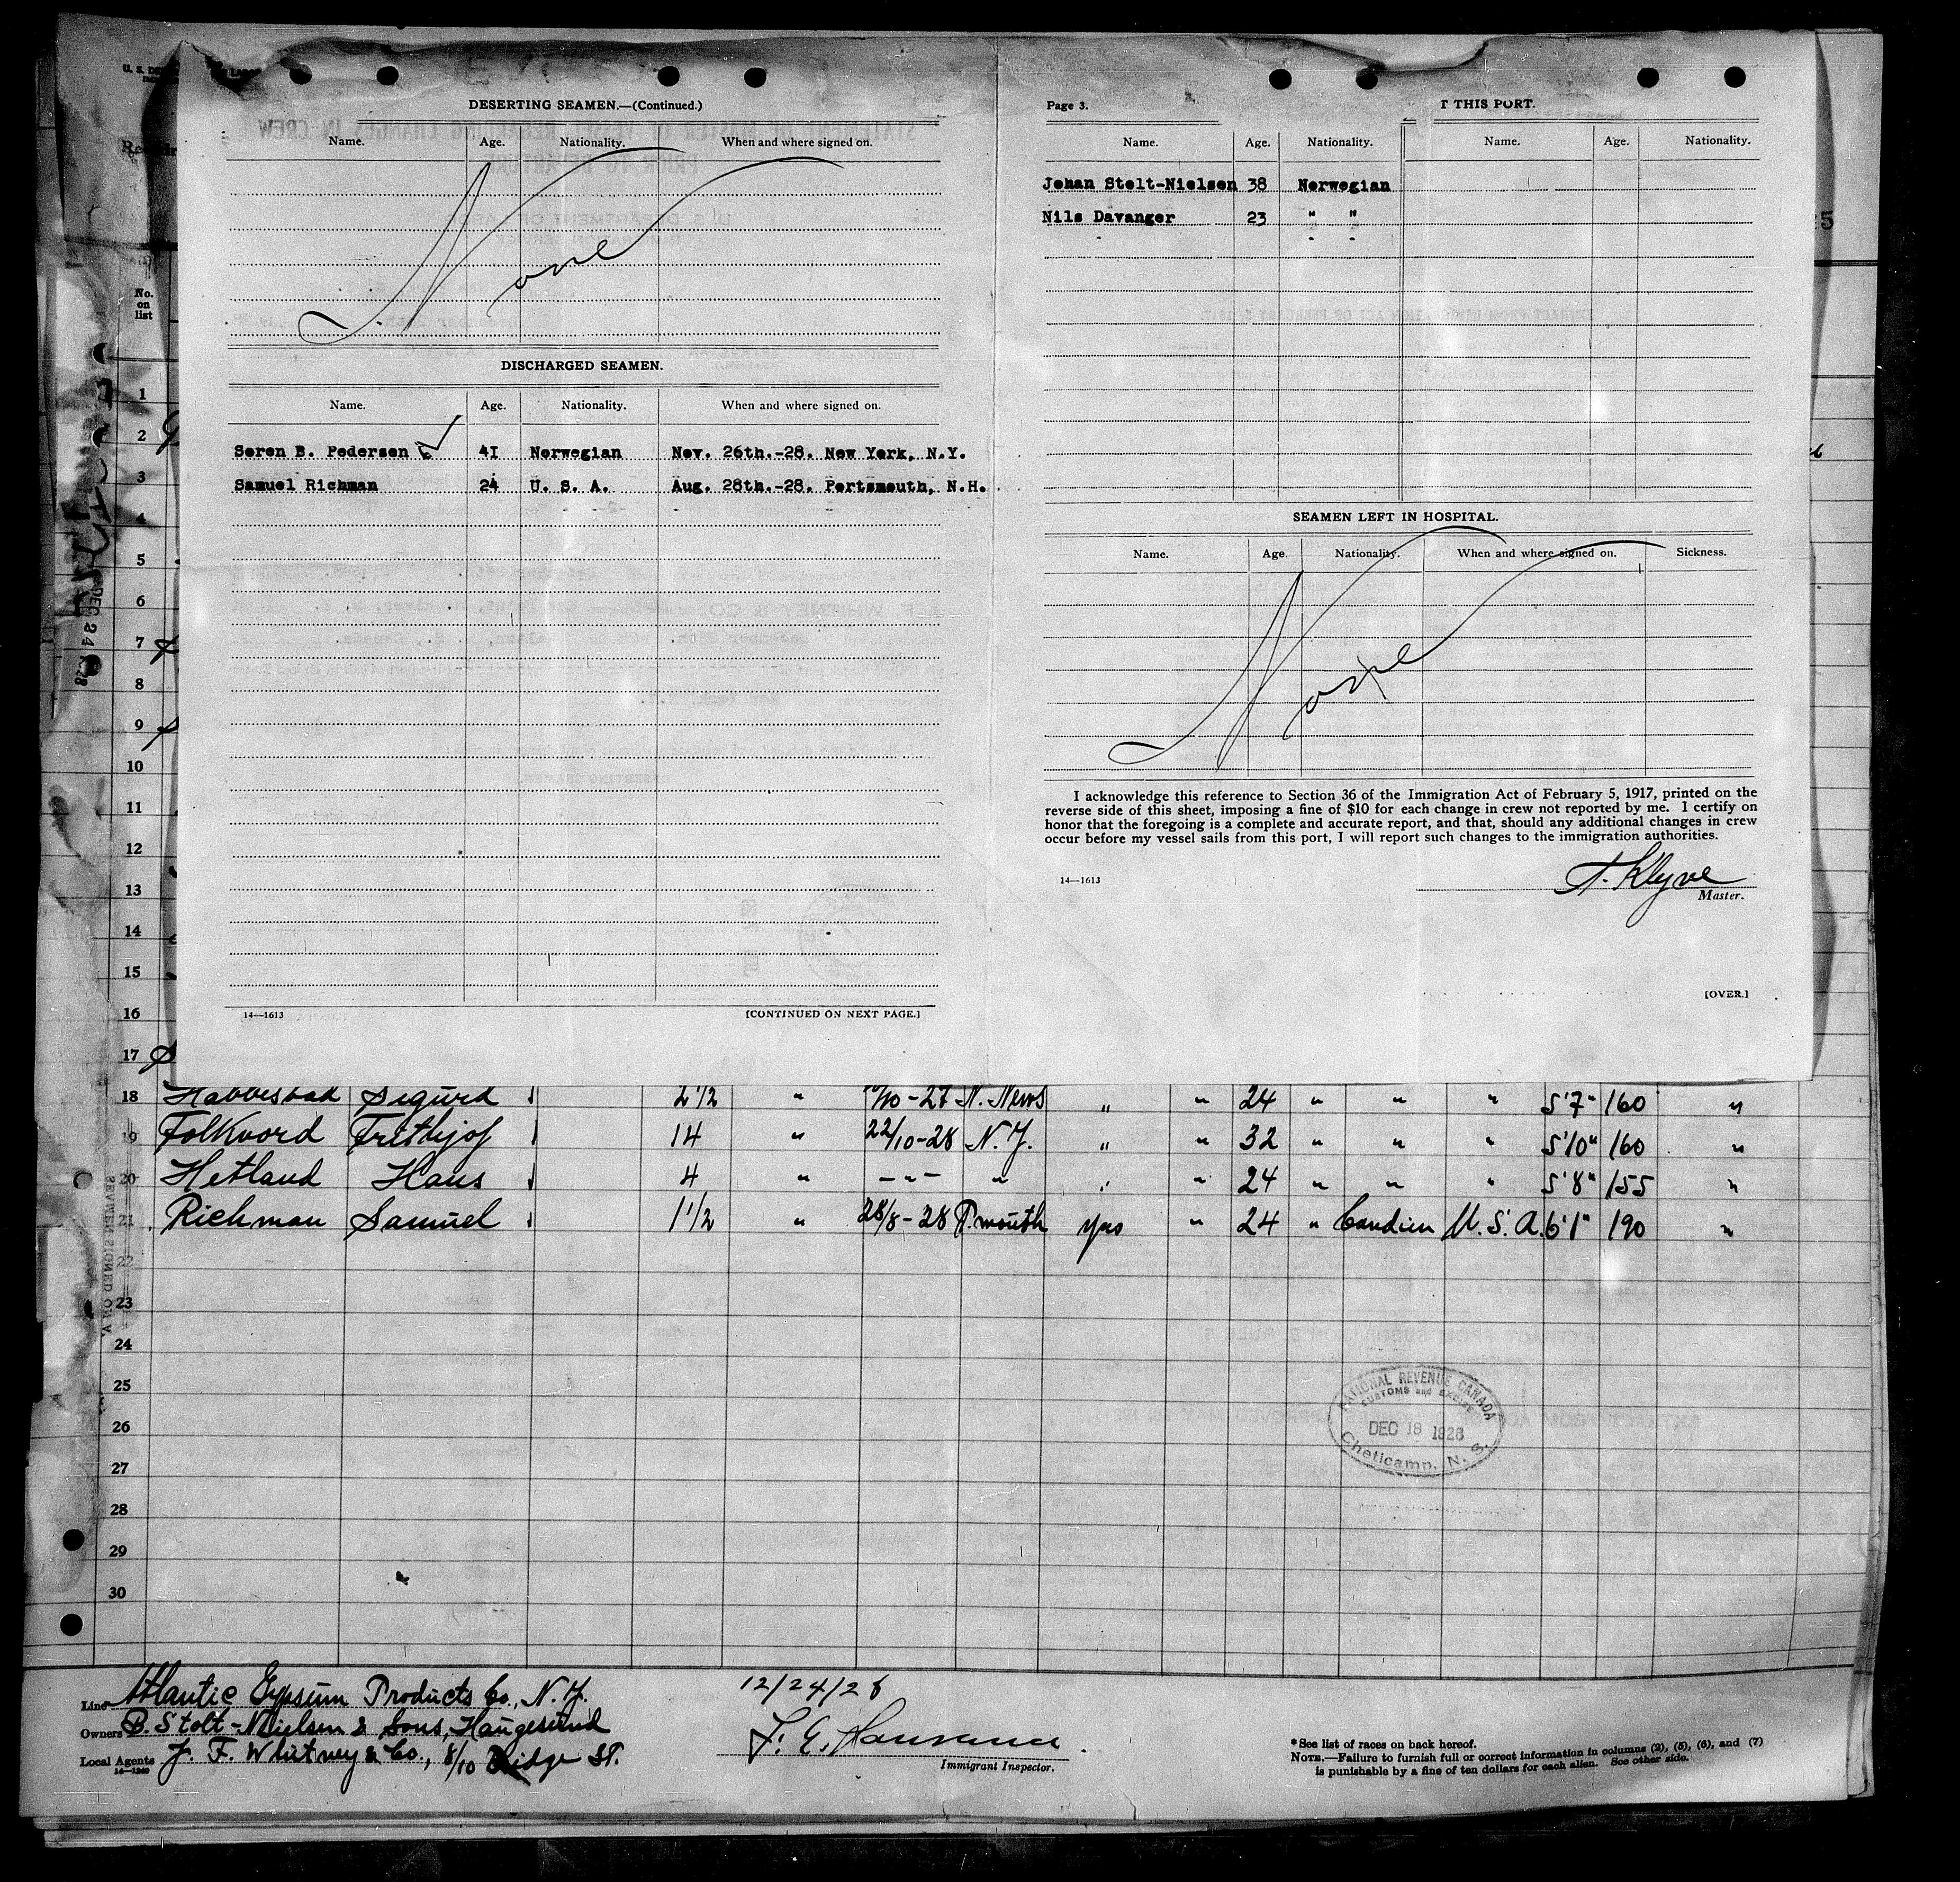 DESERTING SEAMEN.—(Continued.)
Name. Age. Nationality. When and where signed on.
None
DISCHARGED SEAMEN.
Name. Age. Nationality. When and where signed on.
Soren B. Pedersen 41 Norwegian Nov. 26th.-28. New York, N.Y.
Samuel Richman 24 U. S. A. Aug. 28th.-28. Portsmouth, N.H.
14—1613 [CONTINUED ON NEXT PAGE.]
Page 3. T THIS PORT.
Name. Age. Nationality. Name. Age. Nationality.
Johan Stolt-Nielsen 38 Norwegian
Nils Davanger 23 " "
SEAMEN LEFT IN HOSPITAL.
Name. Age Nationality. When and where signed on. Sickness.
None
I acknowledge this reference to Section 36 of the Immigration Act of February 5, 1917, printed on the
reverse side of this sheet, imposing a fine of $10 for each change in crew not reported by me. I certify on
honor that the foregoing is a complete and accurate report, and that, should any additional changes in crew
occur before my vessel sails from this port, I will report such changes to the immigration authorities.
14—1613
T. Klyve
Master.
[OVER.]
No.
on
list
1
2
3
4
5
6
7
8
9
10
11
12
13
14
15
16
17
18 Sigurd 2 1/2 " 10-27 N. News " " 24 " " " 5'7" 160 "
19 Folkvord Frithjof 14 " 22/10-28 N.Y. " " 32 " " " 5'10" 160 "
20 Hetland Hans 4 " -"- " " " 24 " " " 5'8" 155 "
21 Richman Samuel 1 1/2 " 28/8-28 P.mouth yes " 24 " U.S.A. 6'1" 190 "
22
23
24
25
26
27
28
29
30
DEC 24 1928
NATIONAL REVENUE CANADA
CUSTOMS and EXCISE
DEC 18 1928
Cheticamp, N. S.
Line Atlantic Gypsum Products Co., N.Y.
Owners B. Stolt-Nielsen & Sons, Haugesund
Local Agents J. F. Whitney & Co., 8/10 Bridge St.
14—1240
12/24/28
Immigrant Inspector.
*See list of races on back hereof.
NOTE.—Failure to furnish full or correct information in columns (2), (5), (6), and (7)
is punishable by a fine of ten dollars for each alien. See other side.